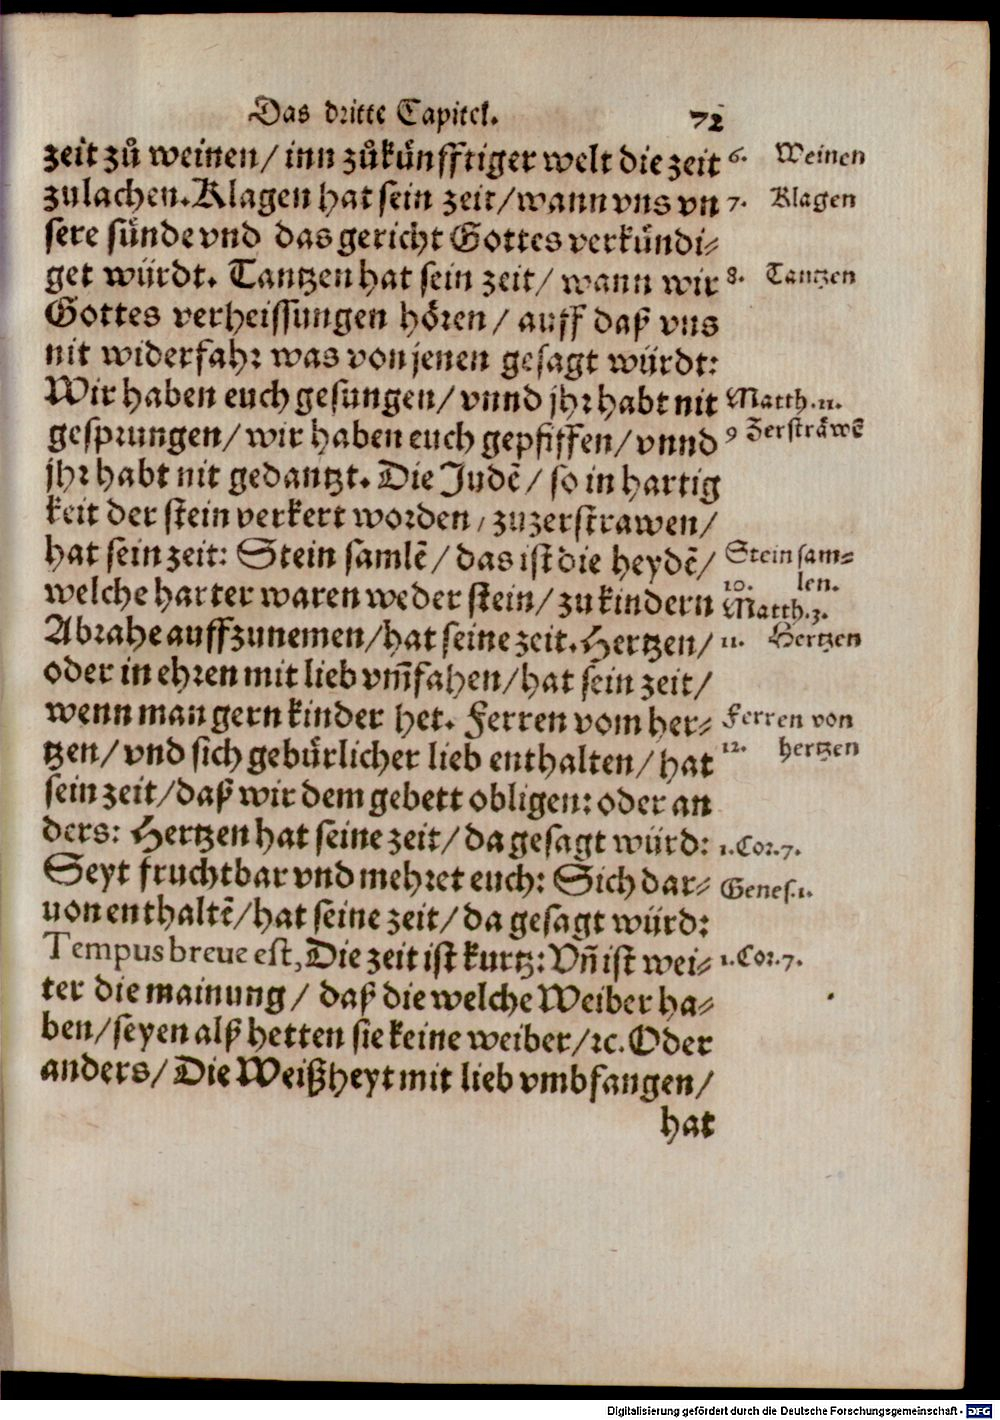 Das dritte Capitel. 72
zeit zů weinen/ inn zůkünfftiger welt die zeit
6. Weinen
zulachen. Klagen hat sein zeit/ wann vns vn
7. Klagen
sere sünde vnd das gericht Gottes verkündi⸗
get würdt. Tantzen hat sein zeit/ wann wir
8. Tantzen
Gottes verheissungen hören/ auff daß vns
nit widerfahr was von jenen gesagt würdt:
Wir haben euch gesungen/ vnnd jhr habt nit
Matth.11.
gesprungen/ wir haben euch gepfiffen/ vnnd
9 Zersträwẽ
jhr habt nit gedantzt. Die Judẽ/ so in hartig
keit der stein verkert worden/ zuzerstrawen/
hat sein zeit: Stein samlẽ/ das ist die heydẽ/
Stein sam⸗
10. len.
welche harter waren weder stein/ zu kindern
Matth.3.
Abrahe auffzunemen/ hat seine zeit. Hertzen/
11. Hertzen
oder in ehren mit lieb vm̃fahen/ hat sein zeit/
wenn man gern kinder het. Ferren vom her⸗
Ferren von
tzen/ vnd sich gebürlicher lieb enthalten/ hat
12. hertzen
sein zeit/ daß wir dem gebett obligen: oder an
ders: Hertzen hat seine zeit/ da gesagt würd:
1.Cor.7.
Seyt fruchtbar vnd mehret euch: Sich dar⸗
Genes.1.
uon enthaltẽ/ hat seine zeit/ da gesagt würd:
Tempus breue est, Die zeit ist kurtz: Vñ ist wei⸗
1.Cor.7.
ter die mainung/ daß die welche Weiber ha⸗
ben/ seyen alß hetten sie keine weiber/ ꝛc. Oder
anders/ Die Weißheyt mit lieb vmbfangen/
hat
Digitalisierung gefördert durch die Deutsche Forschungsgemeinschaft - DFG